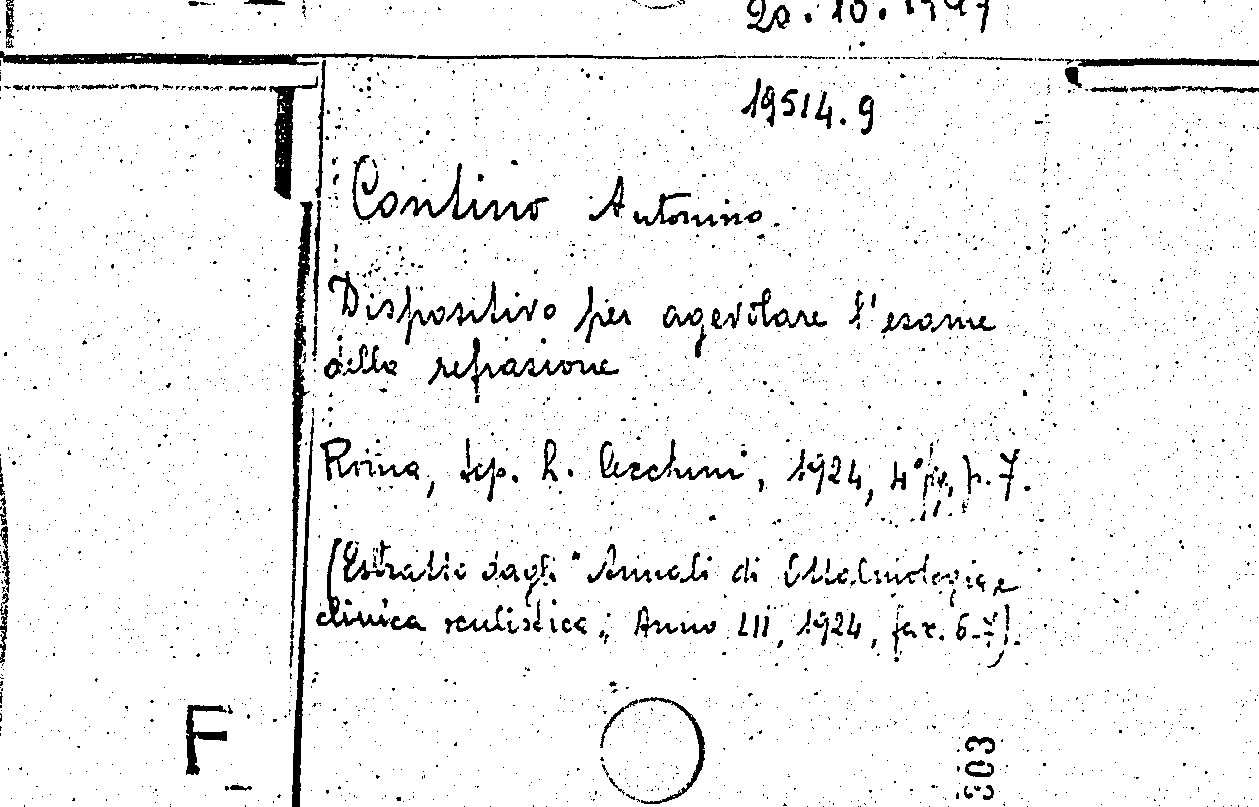 19514.9
Contino Antonino.
Dispositivo per agevolare l'esame
della refrazione
Roma, tip. L. Cecchini, 1924, 4° p. 7.
(Estratto dagli "Annali di Ottalmologia e
clinica oculistica", Anno LII, 1924, fasc. 6-7).
F